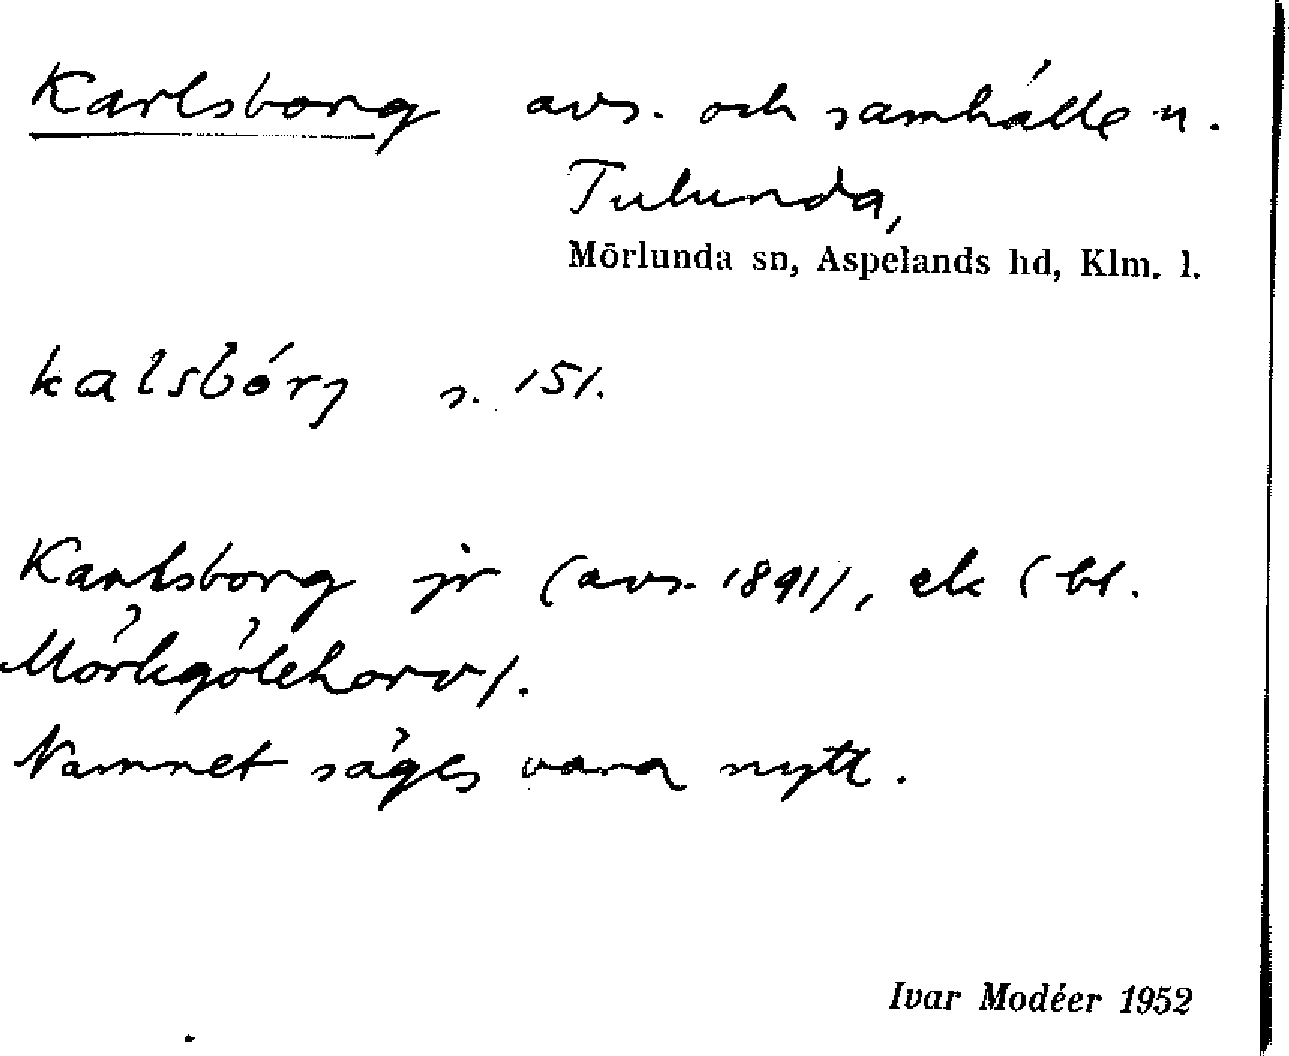 Karlsborg avs. och samhälle u.
Tulunda,
Mörlunda sn, Aspelands hd, Klm. l.
kalsbórj s. 151.
Karlsborg jr (avs. 1891), ek (bl.
Mörkgölehorv).
Namnet säges vara nytt.
Ivar Modéer 1952